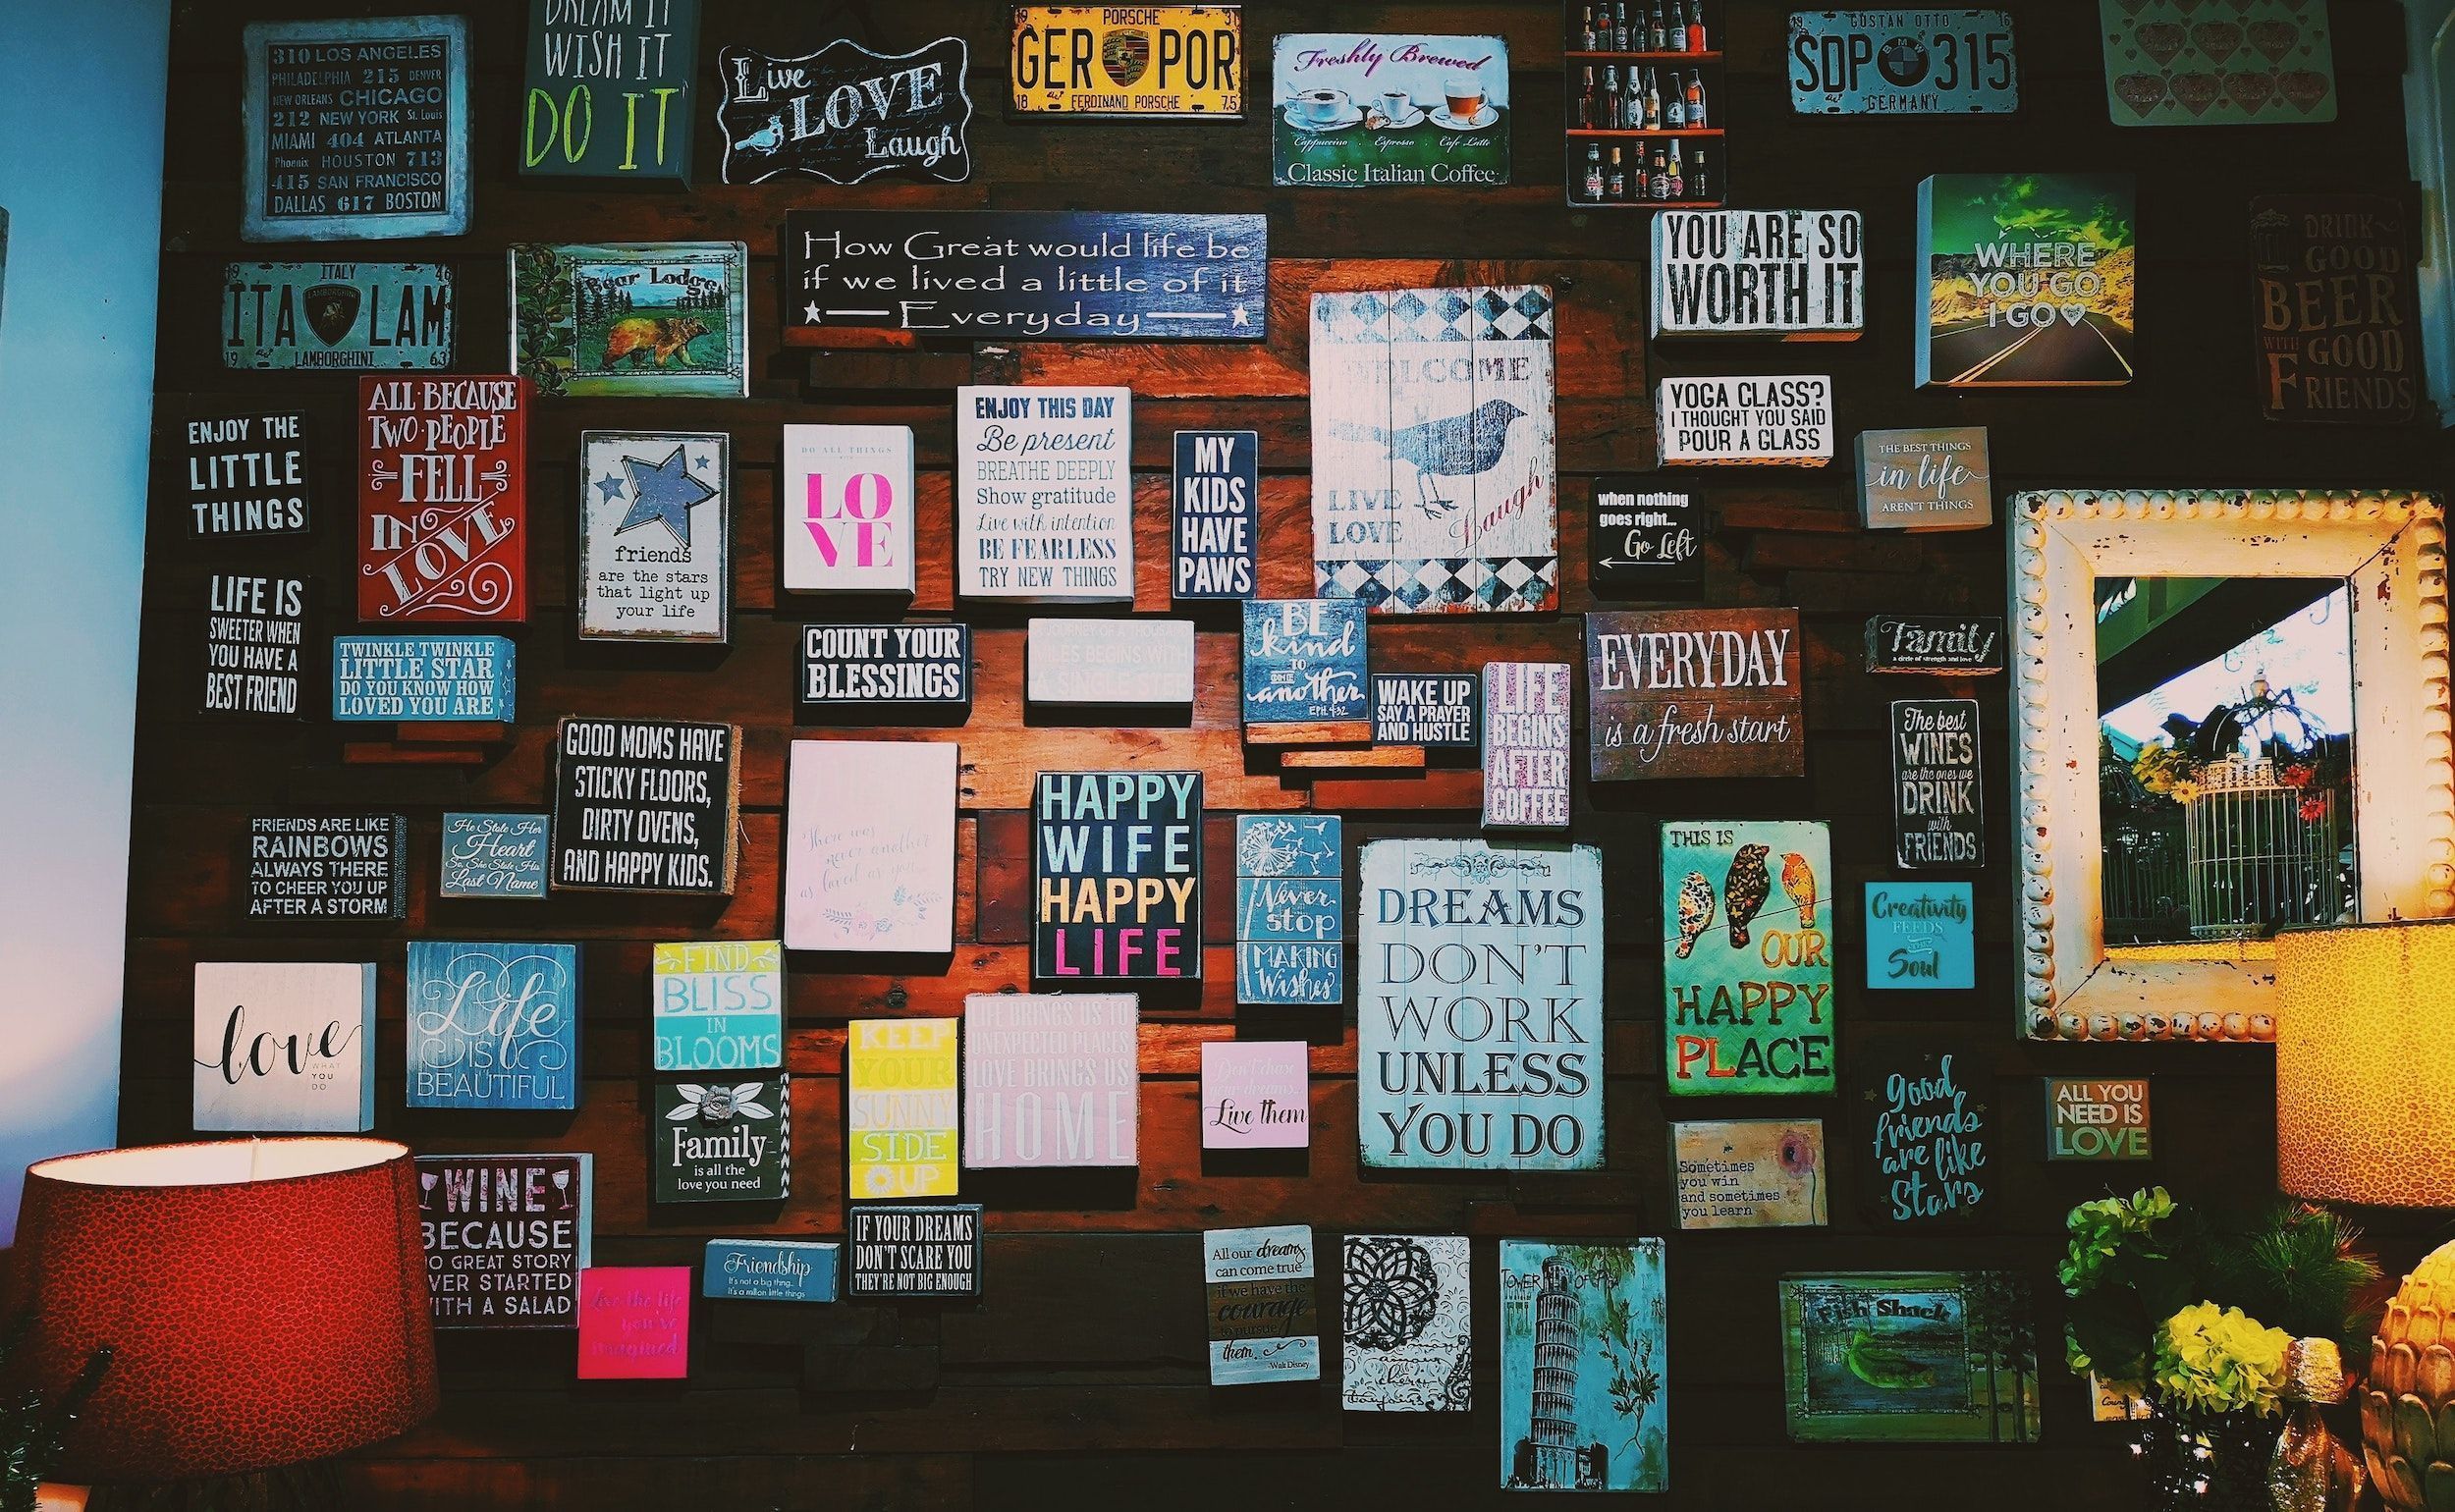 310 LOS ANGELES
PHILADELPHIA 215 DENVER
NEW ORLEANS CHICAGO
212 NEW YORK St. Louis
MIAMI 404 ATLANTA
Phoenix HOUSTON 713
415 SAN FRANCISCO
DALLAS 617 BOSTON
DREAM IT
WISH IT
DO IT
Live
LOVE
Laugh
19 PORSCHE 31
GER POR
18 FERDINAND PORSCHE 75
Freshly Brewed
Cappuccino . Espresso . Cafe Latte
Classic Italian Coffee
19 GUSTAN OTTO 16
SDP BMW 315
GERMANY
19 ITALY 46
ITA LAMBORGHINI LAM
19 LAMBORGHINI 63
Bear Lodge
How Great would life be
if we lived a little of it
Everyday
YOU ARE SO
WORTH IT
WHERE
YOU GO
I GO
DRINK
GOOD
BEER
WITH GOOD
FRIENDS
ENJOY THE
LITTLE
THINGS
ALL BECAUSE
TWO PEOPLE
FELL
IN
LOVE
friends
are the stars
that light up
your life
DO ALL THINGS
LO
VE
ENJOY THIS DAY
Be present
BREATHE DEEPLY
Show gratitude
Live with intention
BE FEARLESS
TRY NEW THINGS
MY
KIDS
HAVE
PAWS
WELCOME
LIVE
LOVE
Laugh
YOGA CLASS?
I THOUGHT YOU SAID
POUR A GLASS
THE BEST THINGS
in life
AREN'T THINGS
when nothing
goes right...
Go Left
LIFE IS
SWEETER WHEN
YOU HAVE A
BEST FRIEND
TWINKLE TWINKLE
LITTLE STAR
DO YOU KNOW HOW
LOVED YOU ARE
COUNT YOUR
BLESSINGS
A JOURNEY OF A THOUSAND
MILES BEGINS WITH
A SINGLE STEP
BE
kind
TO
ONE
another
EPH. 4:32
WAKE UP
SAY A PRAYER
AND HUSTLE
LIFE
BEGINS
AFTER
COFFEE
EVERYDAY
is a fresh start
Family
a circle of strength and love
The best
WINES
are the ones we
DRINK
with
FRIENDS
GOOD MOMS HAVE
STICKY FLOORS,
DIRTY OVENS,
AND HAPPY KIDS.
FRIENDS ARE LIKE
RAINBOWS
ALWAYS THERE
TO CHEER YOU UP
AFTER A STORM
He Stole Her
Heart
So She Stole His
Last Name
There was
never another
as loved as you
HAPPY
WIFE
HAPPY
LIFE
Never
stop
MAKING
Wishes
DREAMS
DON'T
WORK
UNLESS
YOU DO
THIS IS
OUR
HAPPY
PLACE
Creativity
FEEDS
THE
Soul
love
WHAT
YOU
DO
Life
IS
BEAUTIFUL
FIND
BLISS
IN
BLOOMS
Family
is all the
love you need
KEEP
YOUR
SUNNY
SIDE
UP
LIFE BRINGS US TO
UNEXPECTED PLACES
LOVE BRINGS US
HOME
Don't chase
your dreams
Live them
good
friends
are like
Stars
ALL YOU
NEED IS
LOVE
Sometimes
you win
and sometimes
you learn
WINE
BECAUSE
NO GREAT STORY
EVER STARTED
WITH A SALAD
Live the life
you've
imagined
Friendship
It's not a big thing...
It's a million little things
IF YOUR DREAMS
DON'T SCARE YOU
THEY'RE NOT BIG ENOUGH
All our dreams
can come true
if we have the
courage
to pursue
them.
-Walt Disney
TOWER OF PISA
Fish Shack